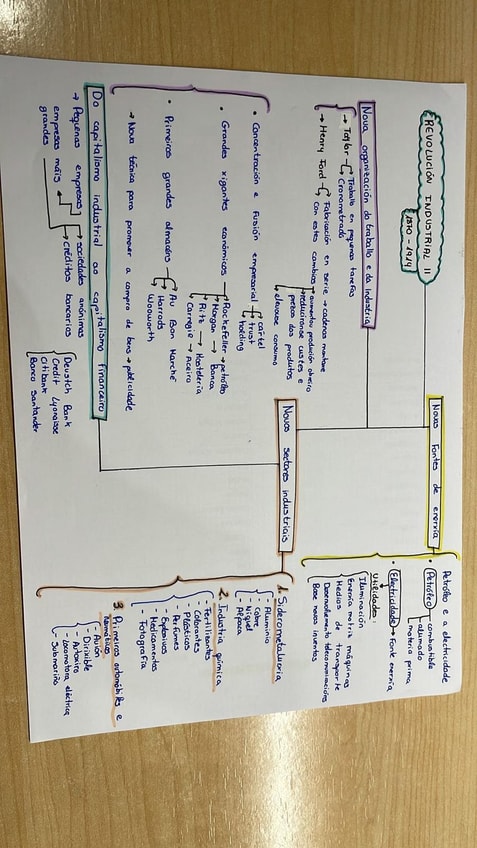 REVOLUCIÓN INDUSTRIAL II
1870 - 1914
Nova organización do traballo e da Industria
→ Taylor
Traballo en pequenas tarefas
Cronometrado
→ Henry Ford
Fabricación en serie → cadeas montaxe
Con estes cambios
aumentou produción obreiro
reducironse custes e
prezo dos produtos
elevouse consumo
• Concentración e fusión empresarial
cártel
trust
holding
• Grandes xigantes económicos
Rockefeller → petróleo
Morgan → Banca
Ritz → Hostelería
Carnegie → Aceiro
• Primeiros grandes almacéns
Au Bon Marché
Harrods
Woolworth
→ Nova técnica para promover a compra de bens → publicidade
Do capitalismo industrial ao capitalismo financeiro
→ Pequenas empresas
empresas máis
grandes
sociedades anónimas
créditos bancarios
Deustch Bank
Credit Lyonaise
Citibank
Banco Santander
Novas fontes de enerxía
Petróleo e a electricidade
• Petróleo
combustible
alumado
materia prima
• Electricidade → Fonte enerxía
Utilidades:
Iluminación
Enerxía motriz máquinas
Medios de transporte
Desenvolvemento telecomunicacións
Base novos inventos
Novos sectores industriais
1. Siderometalurxia
- Aluminio
- Cobre
- Níquel
- Alpaca
2. Industria química
- Fertilizantes
- Colorantes
- Plásticos
- Perfumes
- Explosivos
- Medicamentos
- Fotografía
3. Primeiros automóbiles e
- Avión
- Dirixible
- Autoxiro
- Locomotora eléctrica
- Submariño